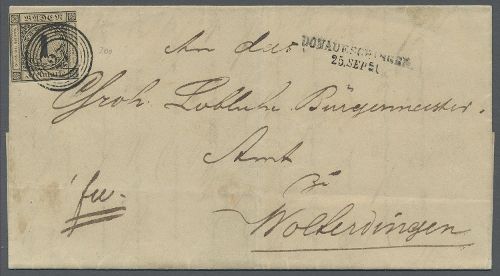 BADEN
An das
DONAUESCHINGEN
25. SEP
Groh. Löbliche Bürgermeister-
Amt
zu
Wolterdingen